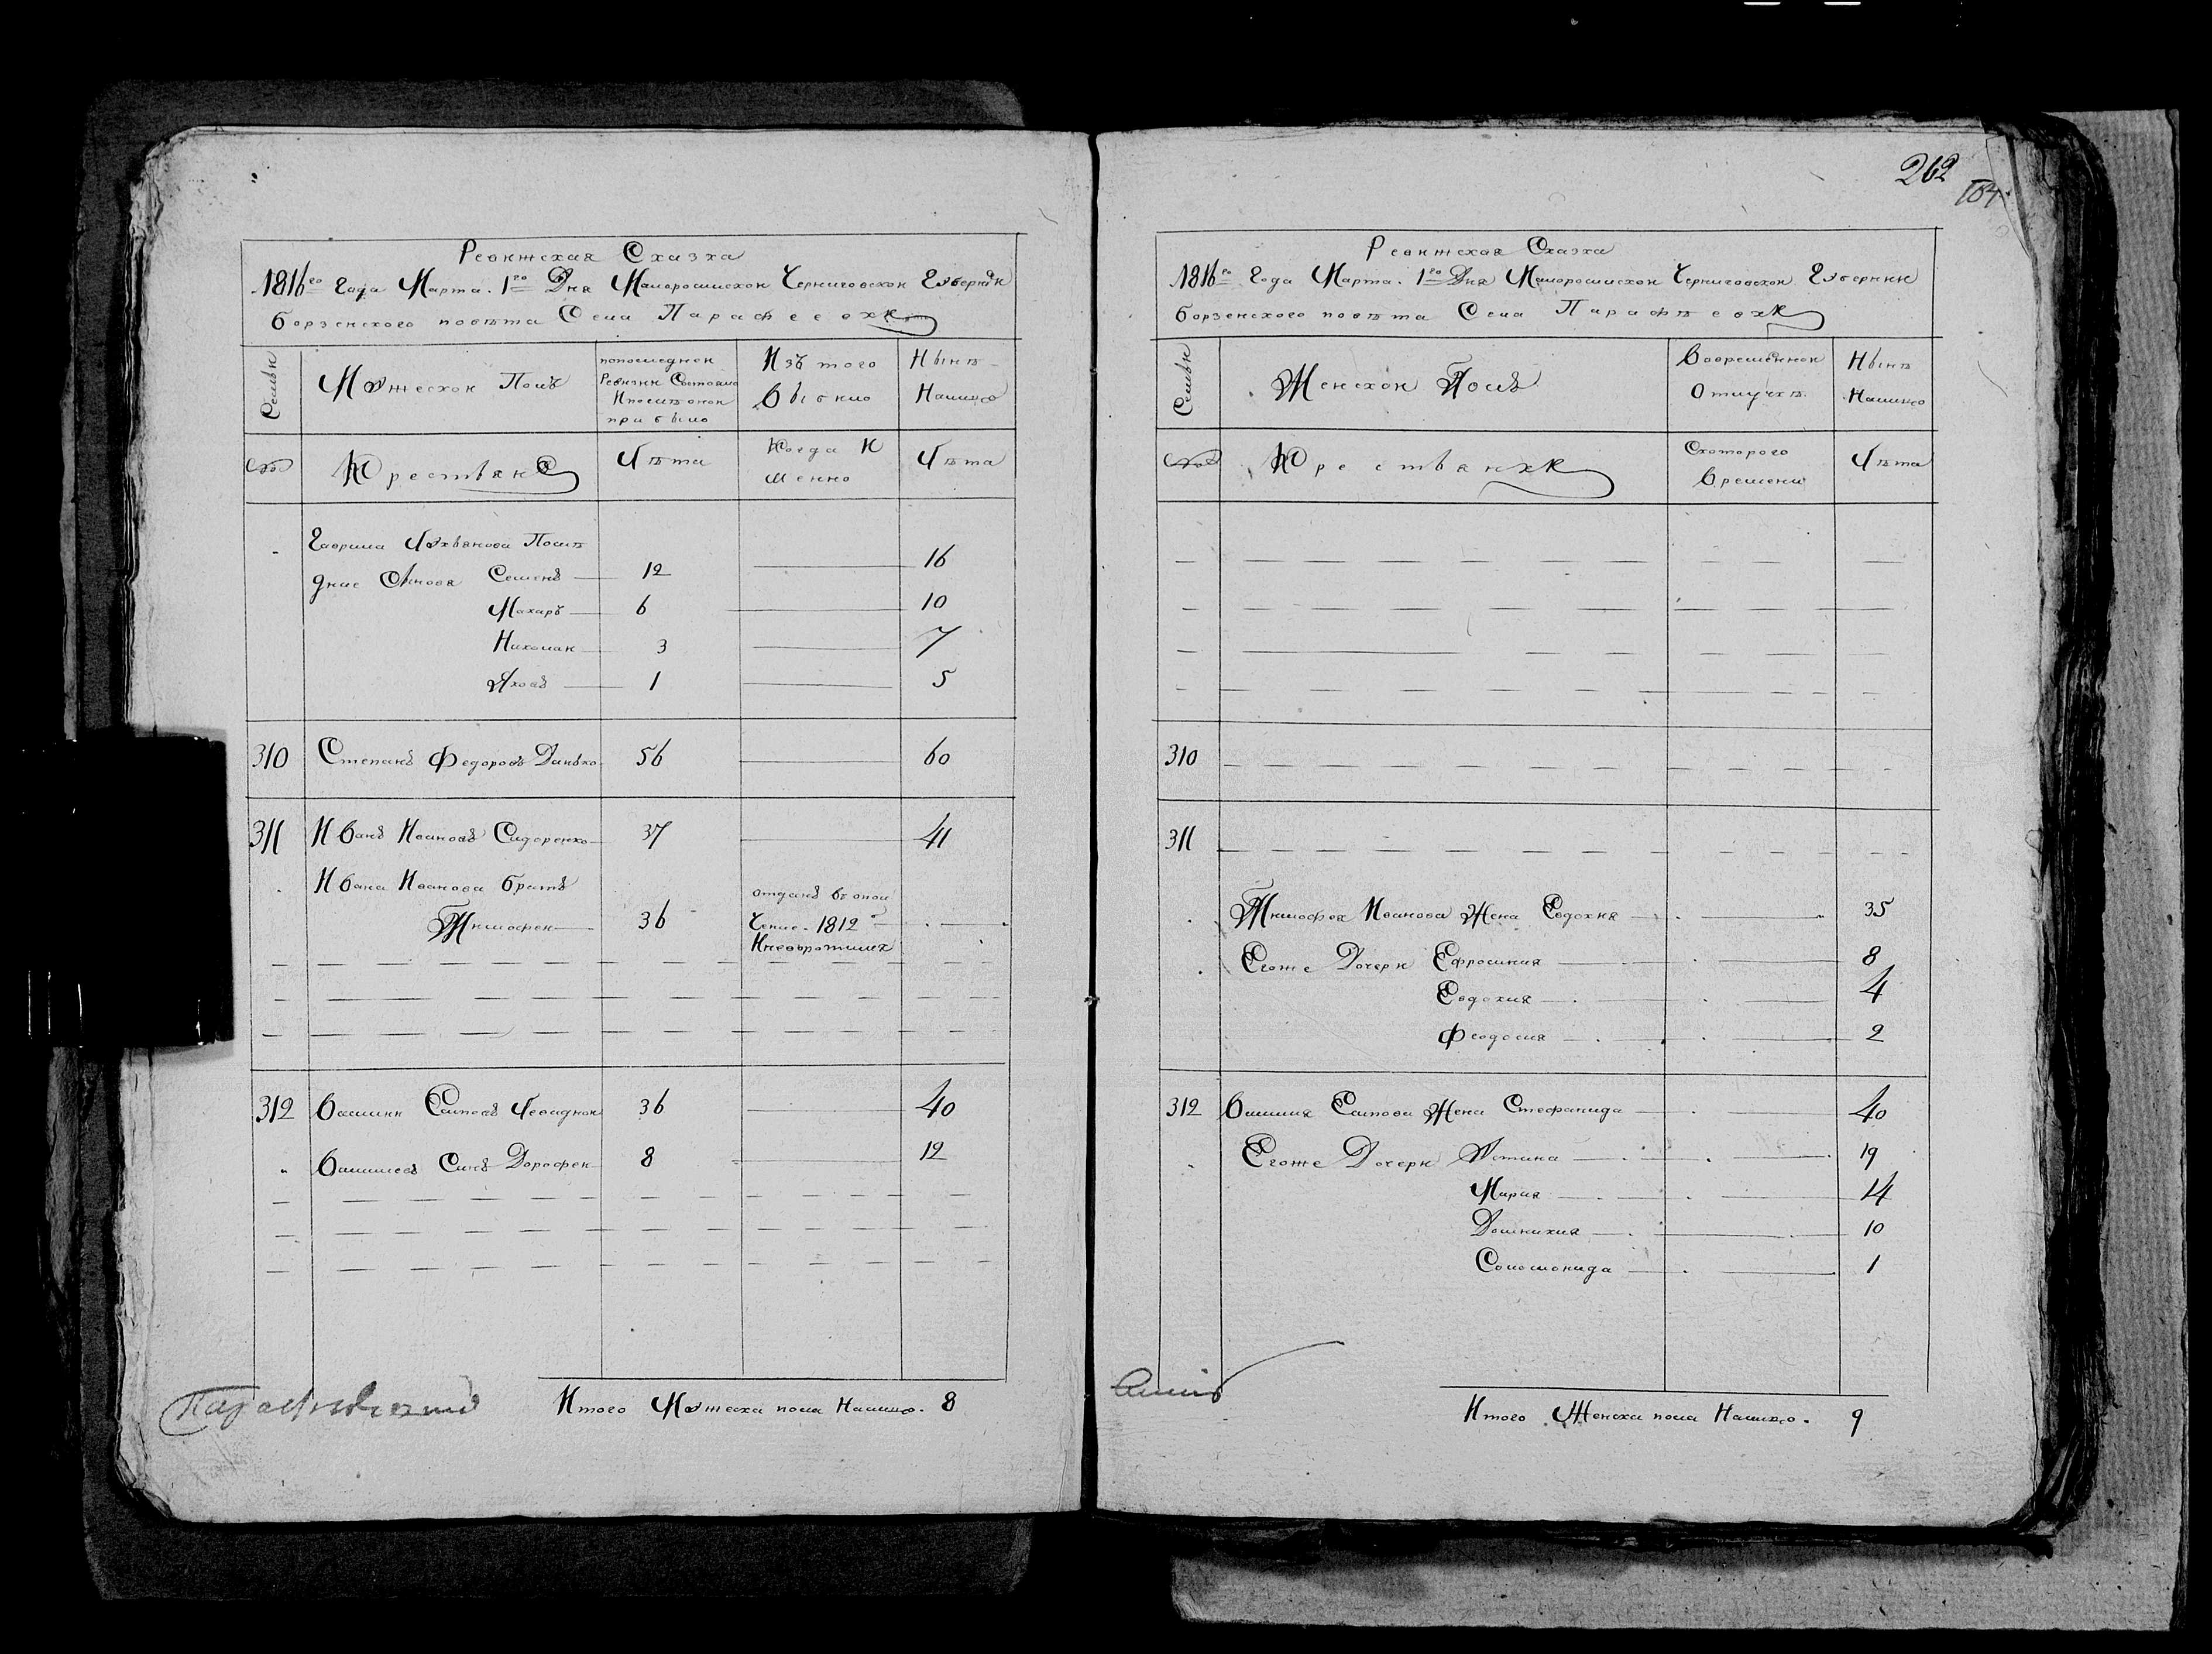 Ревижская Сказка
1816го Года Марта. 1го Дня Малоросийской Черниговской Губернии
борзенского повѣта Села Парафеевки
Семьи
Мужеской Полъ
попоследней
Ревизии Состояло
Ипослѣ оной
прибыло
Изъ того
Выбыло
Нынѣ
Налицо
№
Крестьяне
Лѣта
Когда И
менно
Лѣта
Гаврила Лукьянова Послѣ
дние Сыновя Семенъ 12 16
Макаръ 6 10
Николаи 3 7
Яковъ 1 5
310 Степанъ Федоровъ Данько 56 60
311 Иванъ Ивановъ Сидоренко 37 41
Ивана Иванова братъ
Тимофеи 36
отданъ въ опол
чение. 1812го
Иневратился
312 Василии Еа﻿повъ 36 40
Василиевъ Синъ Дорофеи 8 12
Итого Мужеска пола Налицо. 8
262
Ревижская Сказка
1816го Года Марта. 1го Дня Малоросийской Черниговской Губернии
борзенского повѣта Села Парафѣевки
Семьи
Женской Полъ
Вовременной
Отлучкѣ
Нынѣ
Налицо
№
Крестьянки
Скоторого
Времени
Лѣта
310
311
Тимофея Иванова Жена Евдокия 35
Егоже Дочери Ефросиния 8
Евдокия 4
Феодосия 2
312 Василия Жена Стефанида 40
Егоже Дочери Устина 19
Мария 14
Домникия 10
Соломонида 1
Итого Женска пола Налицо. 9